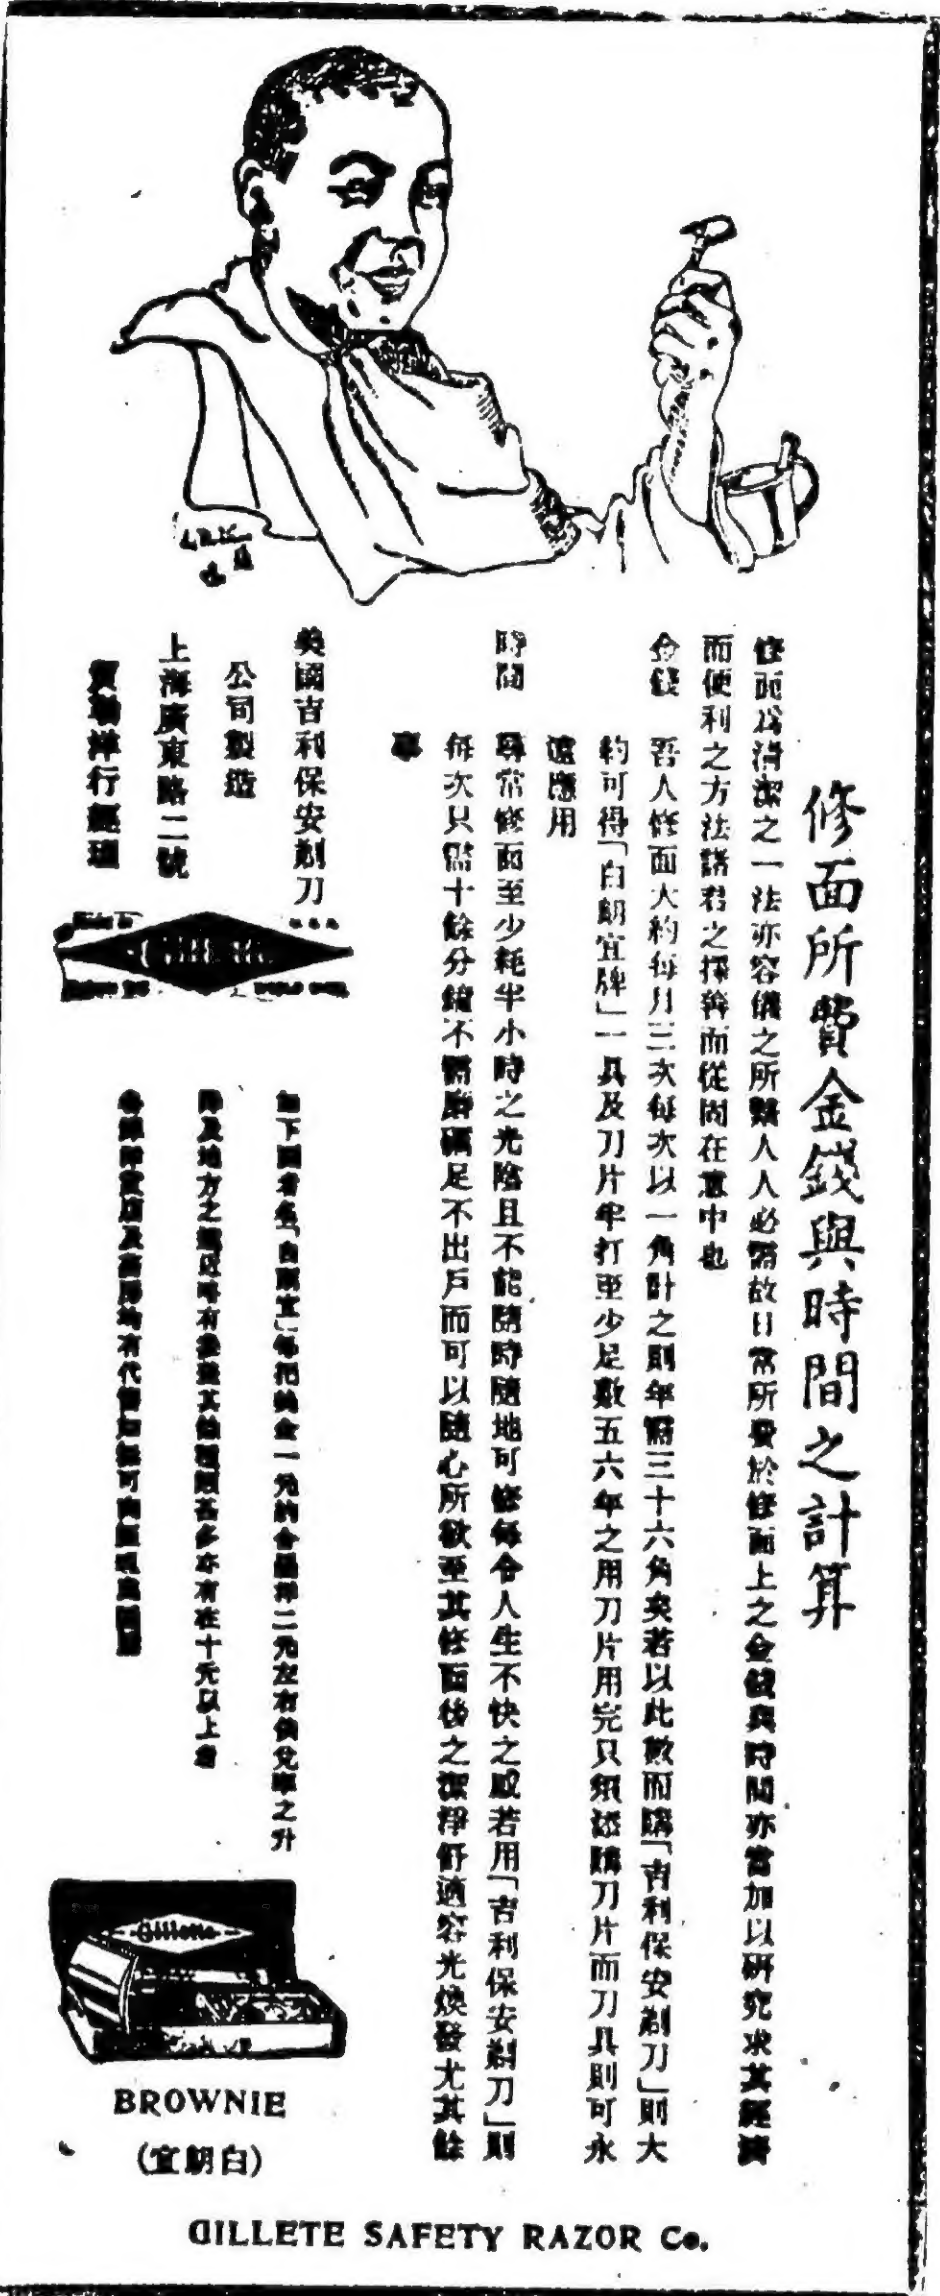 修面所費金錢與時間之計算
修面為清潔之一法亦容儀之所繫人人必需故日常所費於修面上之金錢與時間亦當加以研究求其經濟
而便利之方法諸君之擇善而從固在意中也
金錢 吾人修面大約每月三次每次以一角計之則年需三十六角矣若以此款而購「吉利保安剃刀」則大
約可得「白朗宜牌」一具及刀片半打至少足敷五六年之用刀片用完只須添購刀片而刀具則可永
遠應用
時間 尋常修面至少耗半小時之光陰且不能隨時隨地可修每令人生不快之感若用「吉利保安剃刀」則
每次只需十餘分鐘不需磨礪足不出戶而可以隨心所欲至其修面後之潔淨舒適容光煥發尤其餘
事
美國吉利保安剃刀
公司製造
上海廣東路二號
洋行經理
Gillette
如下圖者名「白朗宜」每把美金一元約合國洋二元左右倘兌率之升
降及地方之遠近略有其他種類甚多亦有在十元以上者
各洋貨店及均有代售如無可向
Gillette
BROWNIE
(宜朗白)
GILLETE SAFETY RAZOR Co.